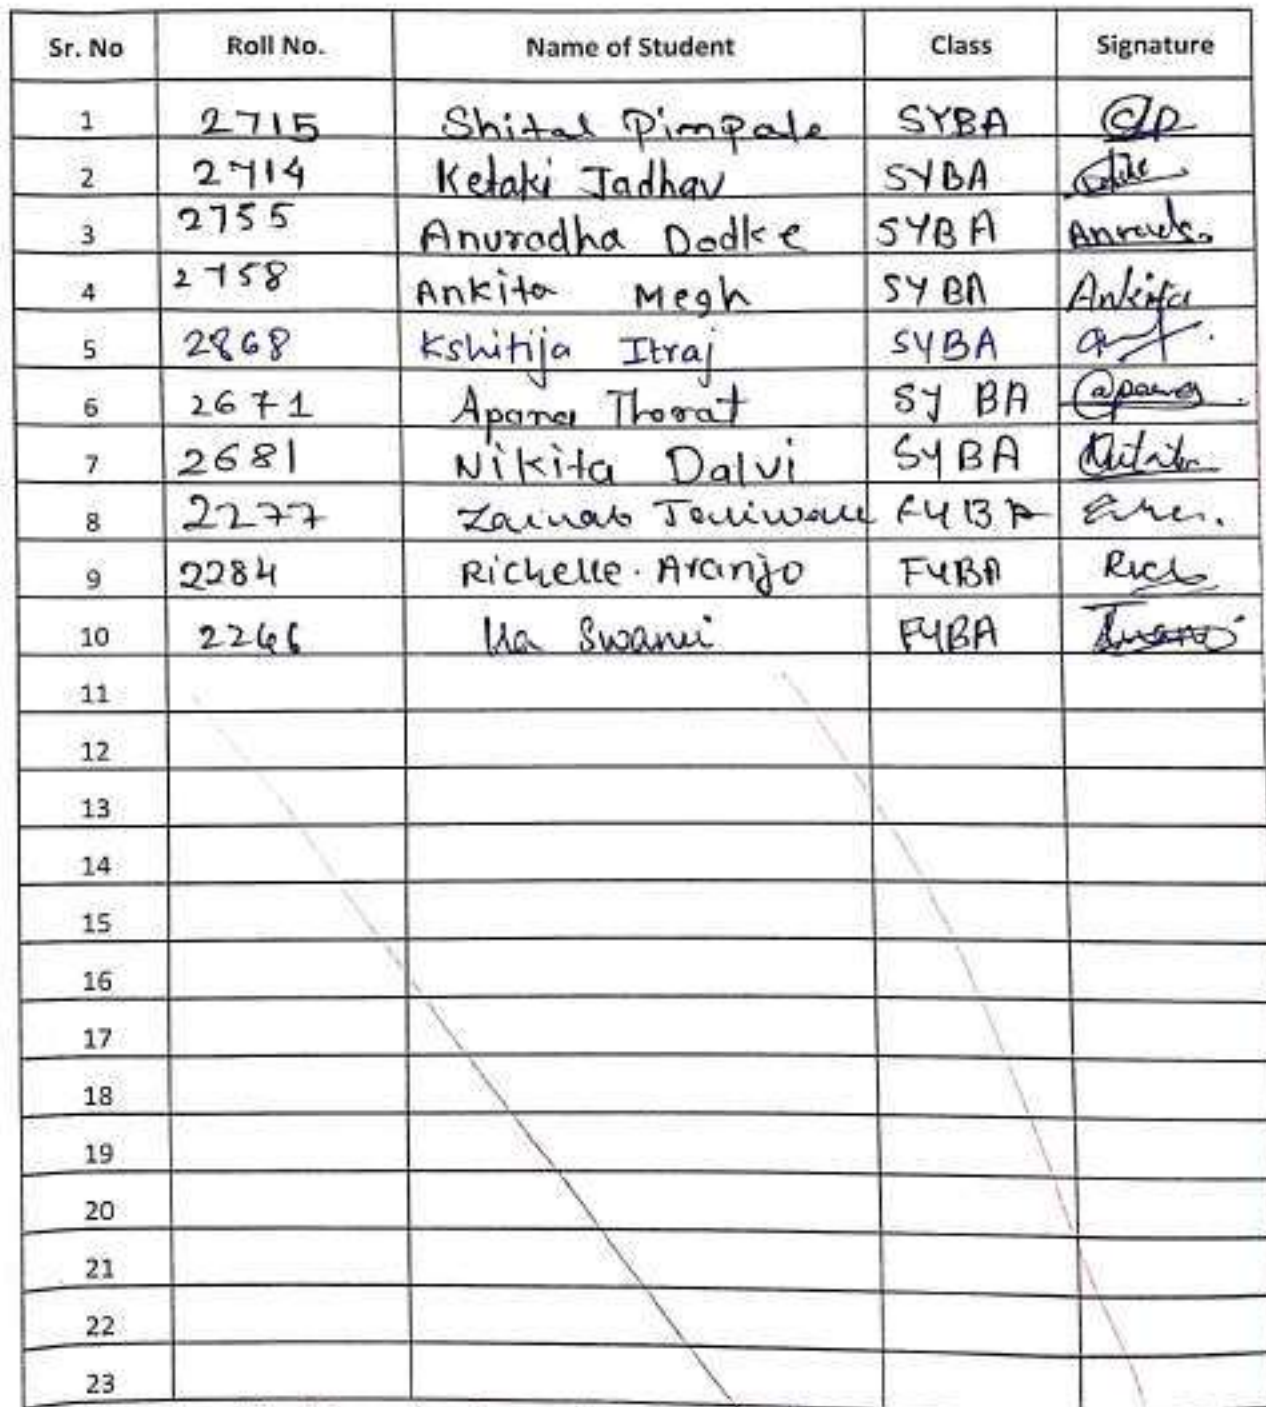 Sr. No Roll No. Name of Student Class Signature
1 2715 Shital Pimpale SYBA
2 2714 Ketaki Jadhav SYBA
3 2755 Anuradha Dodke SYBA
4 2758 Ankita Megh SYBA Ankita
5 2868 Kshitija Itraj SYBA
6 2671 Apana Thorat SY BA
7 2681 Nikita Dalvi SYBA
8 2277 Zainab FYBA
9 2284 Richelle. Aranjo FYBA
10 Swami FYBA
11
12
13
14
15
16
17
18
19
20
21
22
23